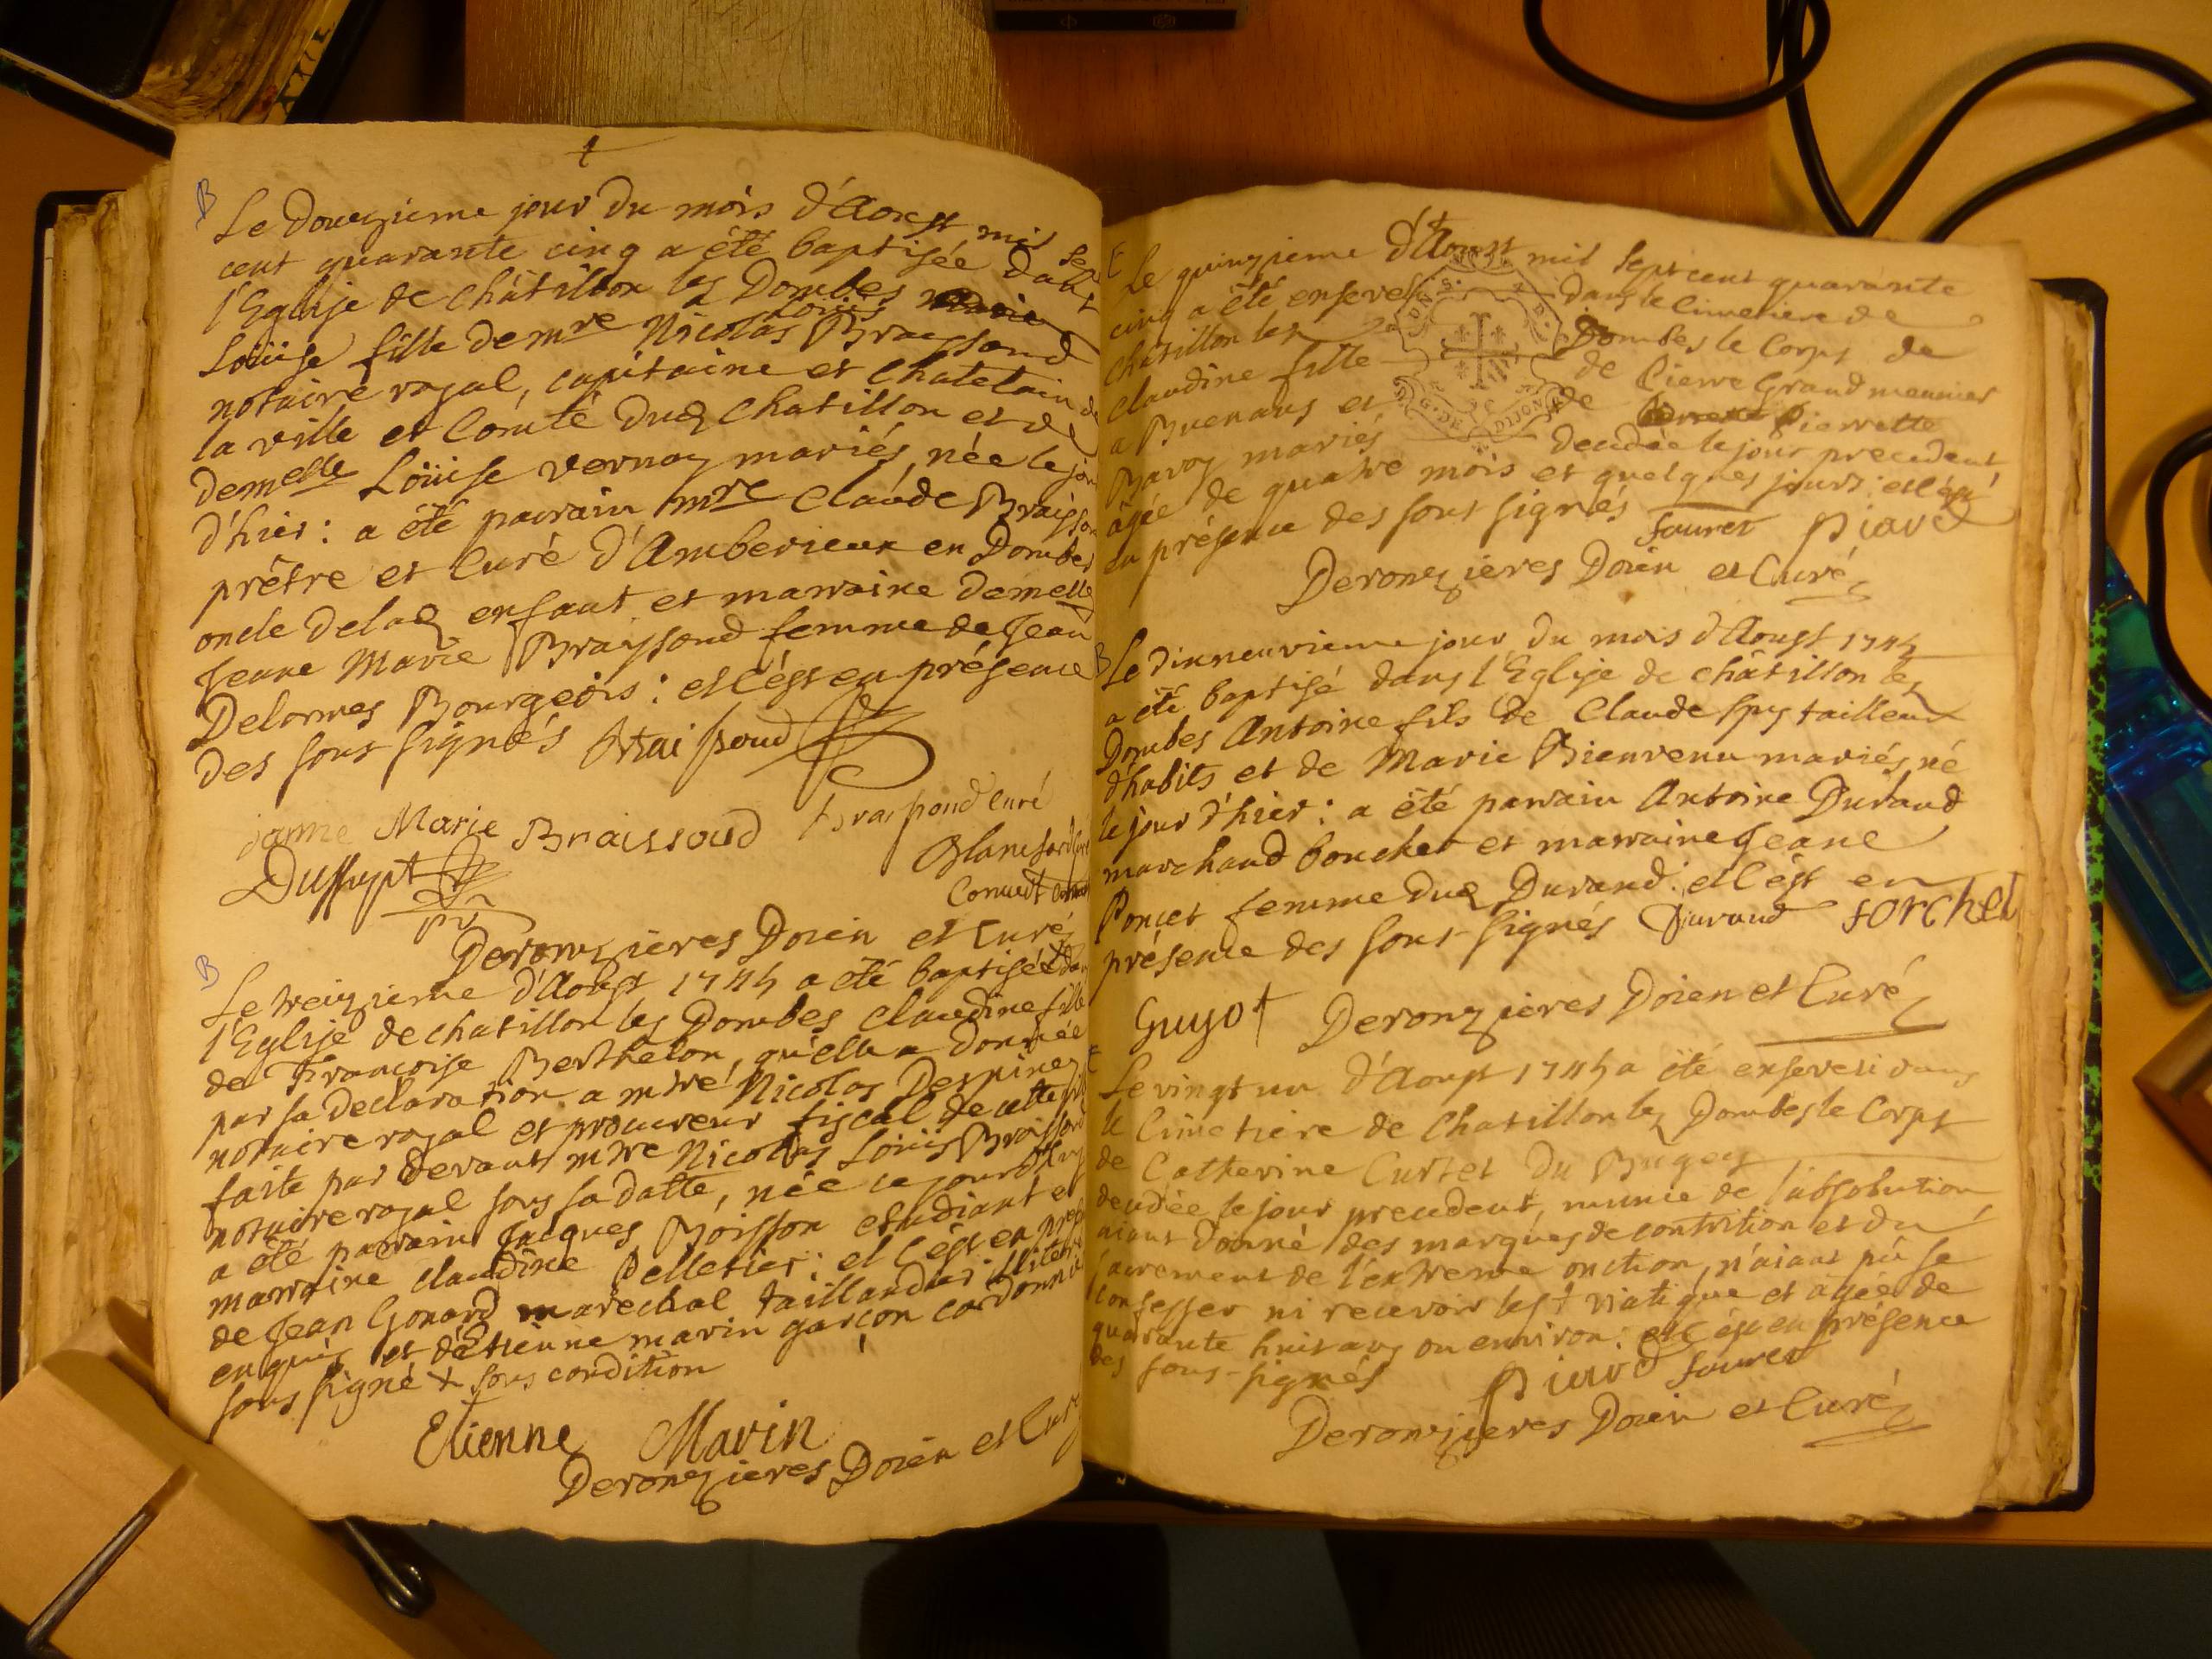 Le douzieme jour du mois d'Aoust mil sept
cent quarante cinq a été baptisée dans
l'Eglise de châtillon les Dombes
Loüise fille de mre Nicolas Loüis Braissoud
notaire royal, capitaine et châtelain de
la ville et Comté dud Chatillon et de
demelle Loüise vernay mariés, née le jour
d'hier : a été parrain mre Claude Braissoud
prêtre et Curé d'Amberieux en Dombes
oncle delad enfant et marraine demelle
Jeane Marie Brayssoud femme de Jean
Delormes Bourgeois : et c'est en présence
des sous signés Braissoud
janne Marie Braissoud Braissoud curé
Deronzieres Doien et Curé
Le treizieme d'Aoust 1745 a été baptisée dans
l'Eglise de chatillon les Dombes Claudine fille
de Françoise Berthelon, qu'elle a donnée
par sa declaration a mtre Nicolas Despiney
notaire royal et procureur fiscal de cette
faite par devant mtre Nicolas Loüis Braissoud
notaire royal sous sa datte, née ce jourd'huy
a été parrain Jacques Boisson etudiant et
marraine claudine Pelletier : et c'est en
de Jean Gonard marechal taillandier illiteré
enquis et d'Etienne marin garçon cordonnier
sous signé + sous condition
Etienne Marin
Deronzieres Doien et Curé
Le quinzieme d'Aoust mil sept cent quarante
cinq a été enseveli dans le cimetiere de
châtillon les Dombes le Corps de
claudine fille de Pierre Grand meunier
a Buenans et de Pierrette
mariés decedée le jour precedent
âgée de quatre mois et quelques jours : et c'est
en présence des sous signés fauret Piard
Deronzieres Doien et Curé
Le dixneuvieme jour du mois d'Aoust 1745
a été baptisé dans l'Eglise de châtillon les
Dombes Antoine fils de Claude Spy tailleur
d'habits et de Marie Bienvenu mariés, né
le jour d'hier : a été parrain Antoine Durand
marchand boucher et marraine Jeane
Poncet femme dud Durand : et c'est en
présence des sous-signés Durand forchet
Guyot Deronzieres Doien et Curé
Le vingt un d'Aoust 1745 a été enseveli dans
le Cimetiere de Chatillon les Dombes le Corps
de Catherine Curtet du Bugey
decedée le jour precedent, munie de l'absolution,
aiant donné des marques de contrition et du
sacrement de l'extreme onction, n'aiant pû se
confesser ni recevoir le st viatique et âgée de
quarante huit ans ou environ : et c'est en présence
des sous-signés Piard fauret
Deronzieres Doien et Curé